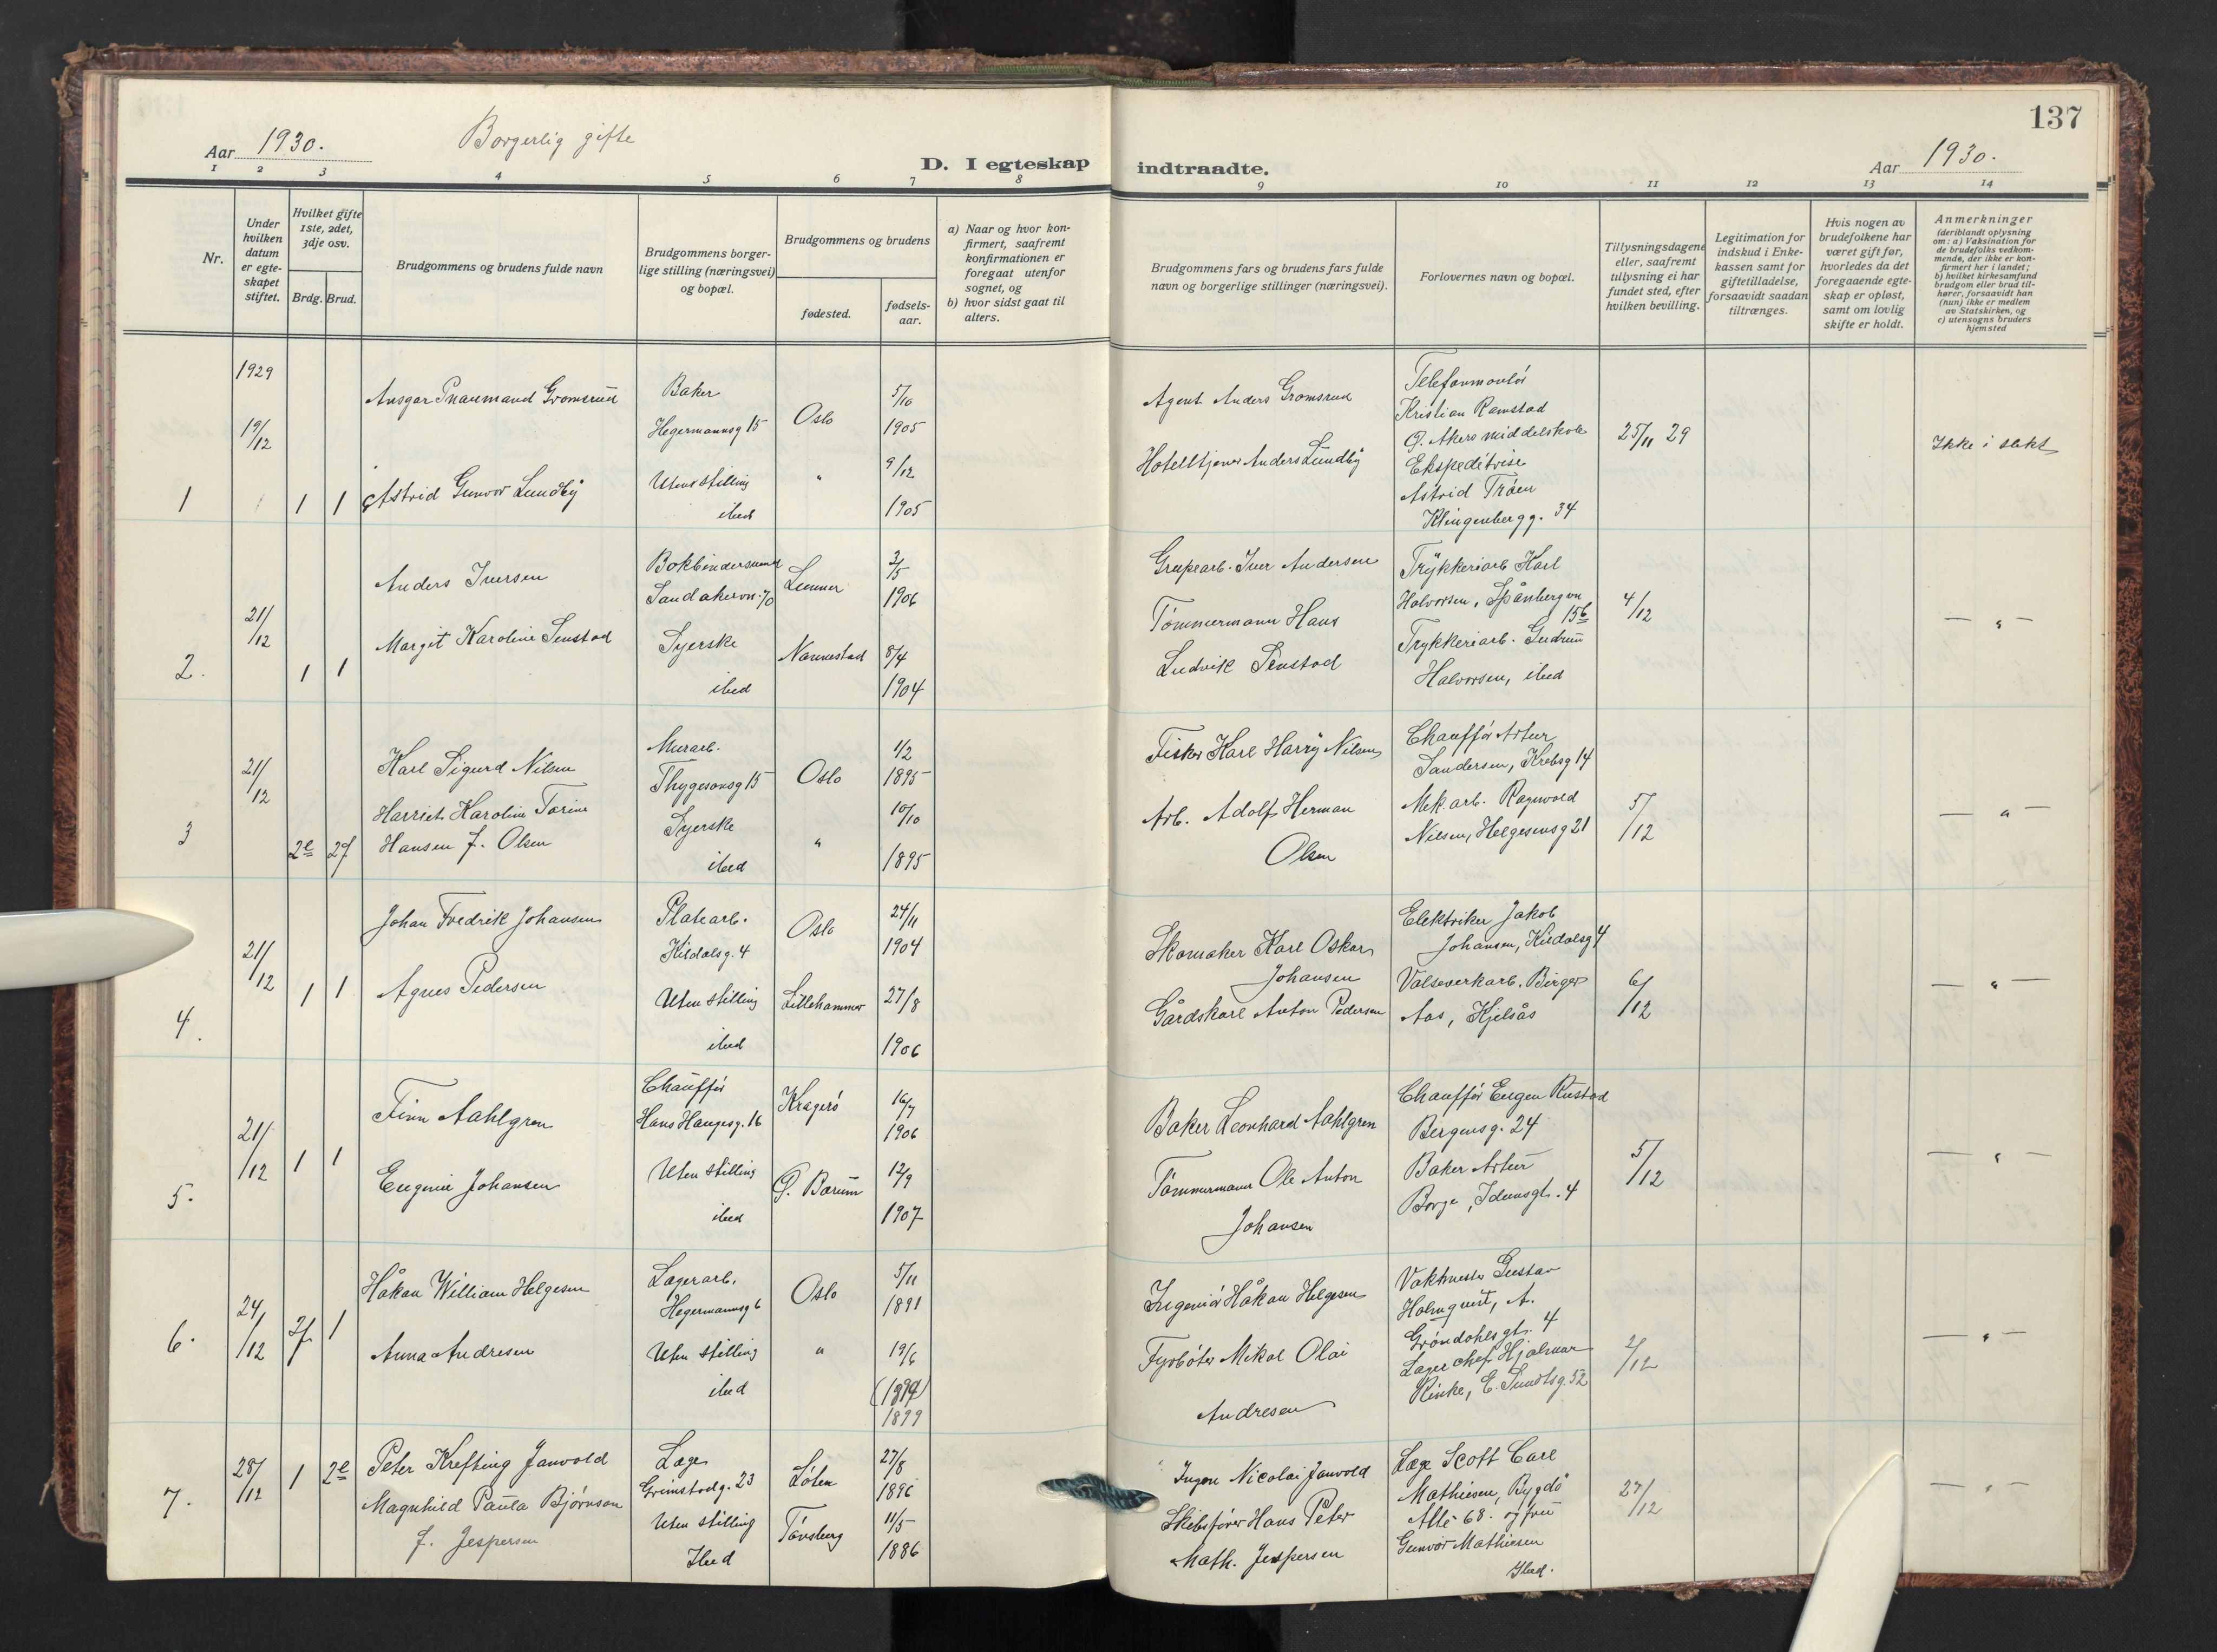 137
Aar 1930.
Borgerlig gifte
D. I egteskap indtraadte.
Aar 1930.
1 2 3 4 5 6 7 8 9 10 11 12 13 14
Nr.
Under
hvilken
datum
er egte-
skapet
stiftet.
Hvilket gifte
1ste, 2det,
3dje osv.
Brdg. Brud.
Brudgommens og brudens fulde navn
Brudgommens borger-
lige stilling (næringsvei)
og bopæl.
Brudgommens og brudens
fødested.
fødsels-
aar.
a) Naar og hvor kon-
firmert, saafremt
konfirmationen er
foregaat utenfor
sognet, og
b) hvor sidst gaat til
alters.
Brudgommens fars og brudens fars fulde
navn og borgerlige stillinger (næringsvei).
Forlovernes navn og bopæl.
Tillysningsdagene
eller, saafremt
tillysning ei har
fundet sted, efter
hvilken bevilling.
Legitimation for
indskud i Enke-
kassen samt for
giftetilladelse,
forsaavidt saadan
tiltrænges.
Hvis nogen av
brudefolkene har
været gift før,
hvorledes da det
foregaaende egte-
skap er opløst,
samt om lovlig
skifte er holdt.
Anmerkninger
(deriblandt oplysning
om: a) Vaksination for
de brudefolks vedkom-
mende, der ikke er kon-
firmert her i landet;
b) hvilket kirkesamfund
brudgom eller brud til-
hører, forsaavidt han
(hun) ikke er medlem
av Statskirken, og
c) utensogns bruders
hjemsted
1
1929
19/12
1 1
Ansgar Gromsrud
Astrid Gunvor Lundby
Baker
Hegermannsg 15
Uten stilling
ibid
Oslo
"
5/10
1905
9/12
1905
Agent Anders Gromsrud
Hotelltjener Anders Lundby
Telefonmontör
Kristian Ramstad
Ø. Akers middelskole
Ekspeditrise
Astrid Tröen
Klingenbergg. 34
25/11 29
Ikke i slekt
2.
21/12
1 1
Anders Iversen
Margit Karoline Senstad
Bokbindersvend
Sandakervn. 70
Syerske
ibid
Lunner
Nannestad
3/5
1906
8/4
1904
Grupearb. Iver Andersen
Tömmermann Hans
Ludvik Senstad
Trykkeriarb Karl
Halvorsen, Spånbergvn
15b
Trykkeriarb. Gudrun
Halvorsen, ibid
4/12
— " —
3
21/12
2e 2f
Karl Sigurd Nilsen
Harriet Karoline Torine
Hansen f. Olsen
Murarb.
Thygesonsg 15
Syerske
ibid
Oslo
"
1/2
1895
10/10
1895
Fisker Karl Harry Nilsen
Arb. Adolf Herman
Olsen
Chaufför Artur
Sandersen, Krebsg 14
Mek. arb. Ragnvald
Nilsen, Helgesensg 21
5/12
— " —
4.
21/12
1 1
Johan Fredrik Johansen
Agnes Pedersen
Platearb.
Kildalsg. 4
Uten stilling
ibid
Oslo
Lillehammer
24/11
1904
27/8
1906
Skomaker Karl Oskar
Johansen
Gårdskarl Anton Pedersen
Elektriker Jakob
Johansen, Kildalsg 4
Valseverkarb. Birger
Aas, Kjelsås
6/12
— " —
5.
21/12
1 1
Finn Aahlgren
Eugenie Johansen
Chaufför
Hans Haugesg. 16
Uten stilling
ibid
Kragerö
Ø. Bærum
16/7
1906
12/9
1907
Baker Leonhard Aahlgren
Tömmermann Ole Anton
Johansen
Chaufför Eugen Rustad
Bergensg. 24
Baker Artur
Borge, Idunsgt. 4
5/12
— " —
6.
24/12
2f 1
Håkan William Helgesen
Anna Andresen
Lagerarb.
Hegermannsg 6
Uten stilling
ibid
Oslo
"
5/11
1891
19/6
(1894)
1899
Ingeniör Håkan Helgesen
Fyrböter Mikal Olai
Andresen
Vaktmester Gustav
Holmquist, A.
Gröndahlsgt. 4
Lagerchef Hjalmar
Rinke, E. Sundtsg. 52
2/12
— " —
7.
28/12
1 2e
Peter Krefting Janvold
Magnhild Paula Björnson
f. Jespersen
Læge
Grimstadg. 23
Uten stilling
Ibid
Löten
Tönsberg
27/8
1896
11/5
1886
Ingen. Nicolai Janvold
Skibsförer Hans Peter
Math. Jespersen
Læge Scott Carl
Mathiesen, Bygdö
Allé 68. og fru
Gunvor Mathiesen
Ibid.
27/12
— " —